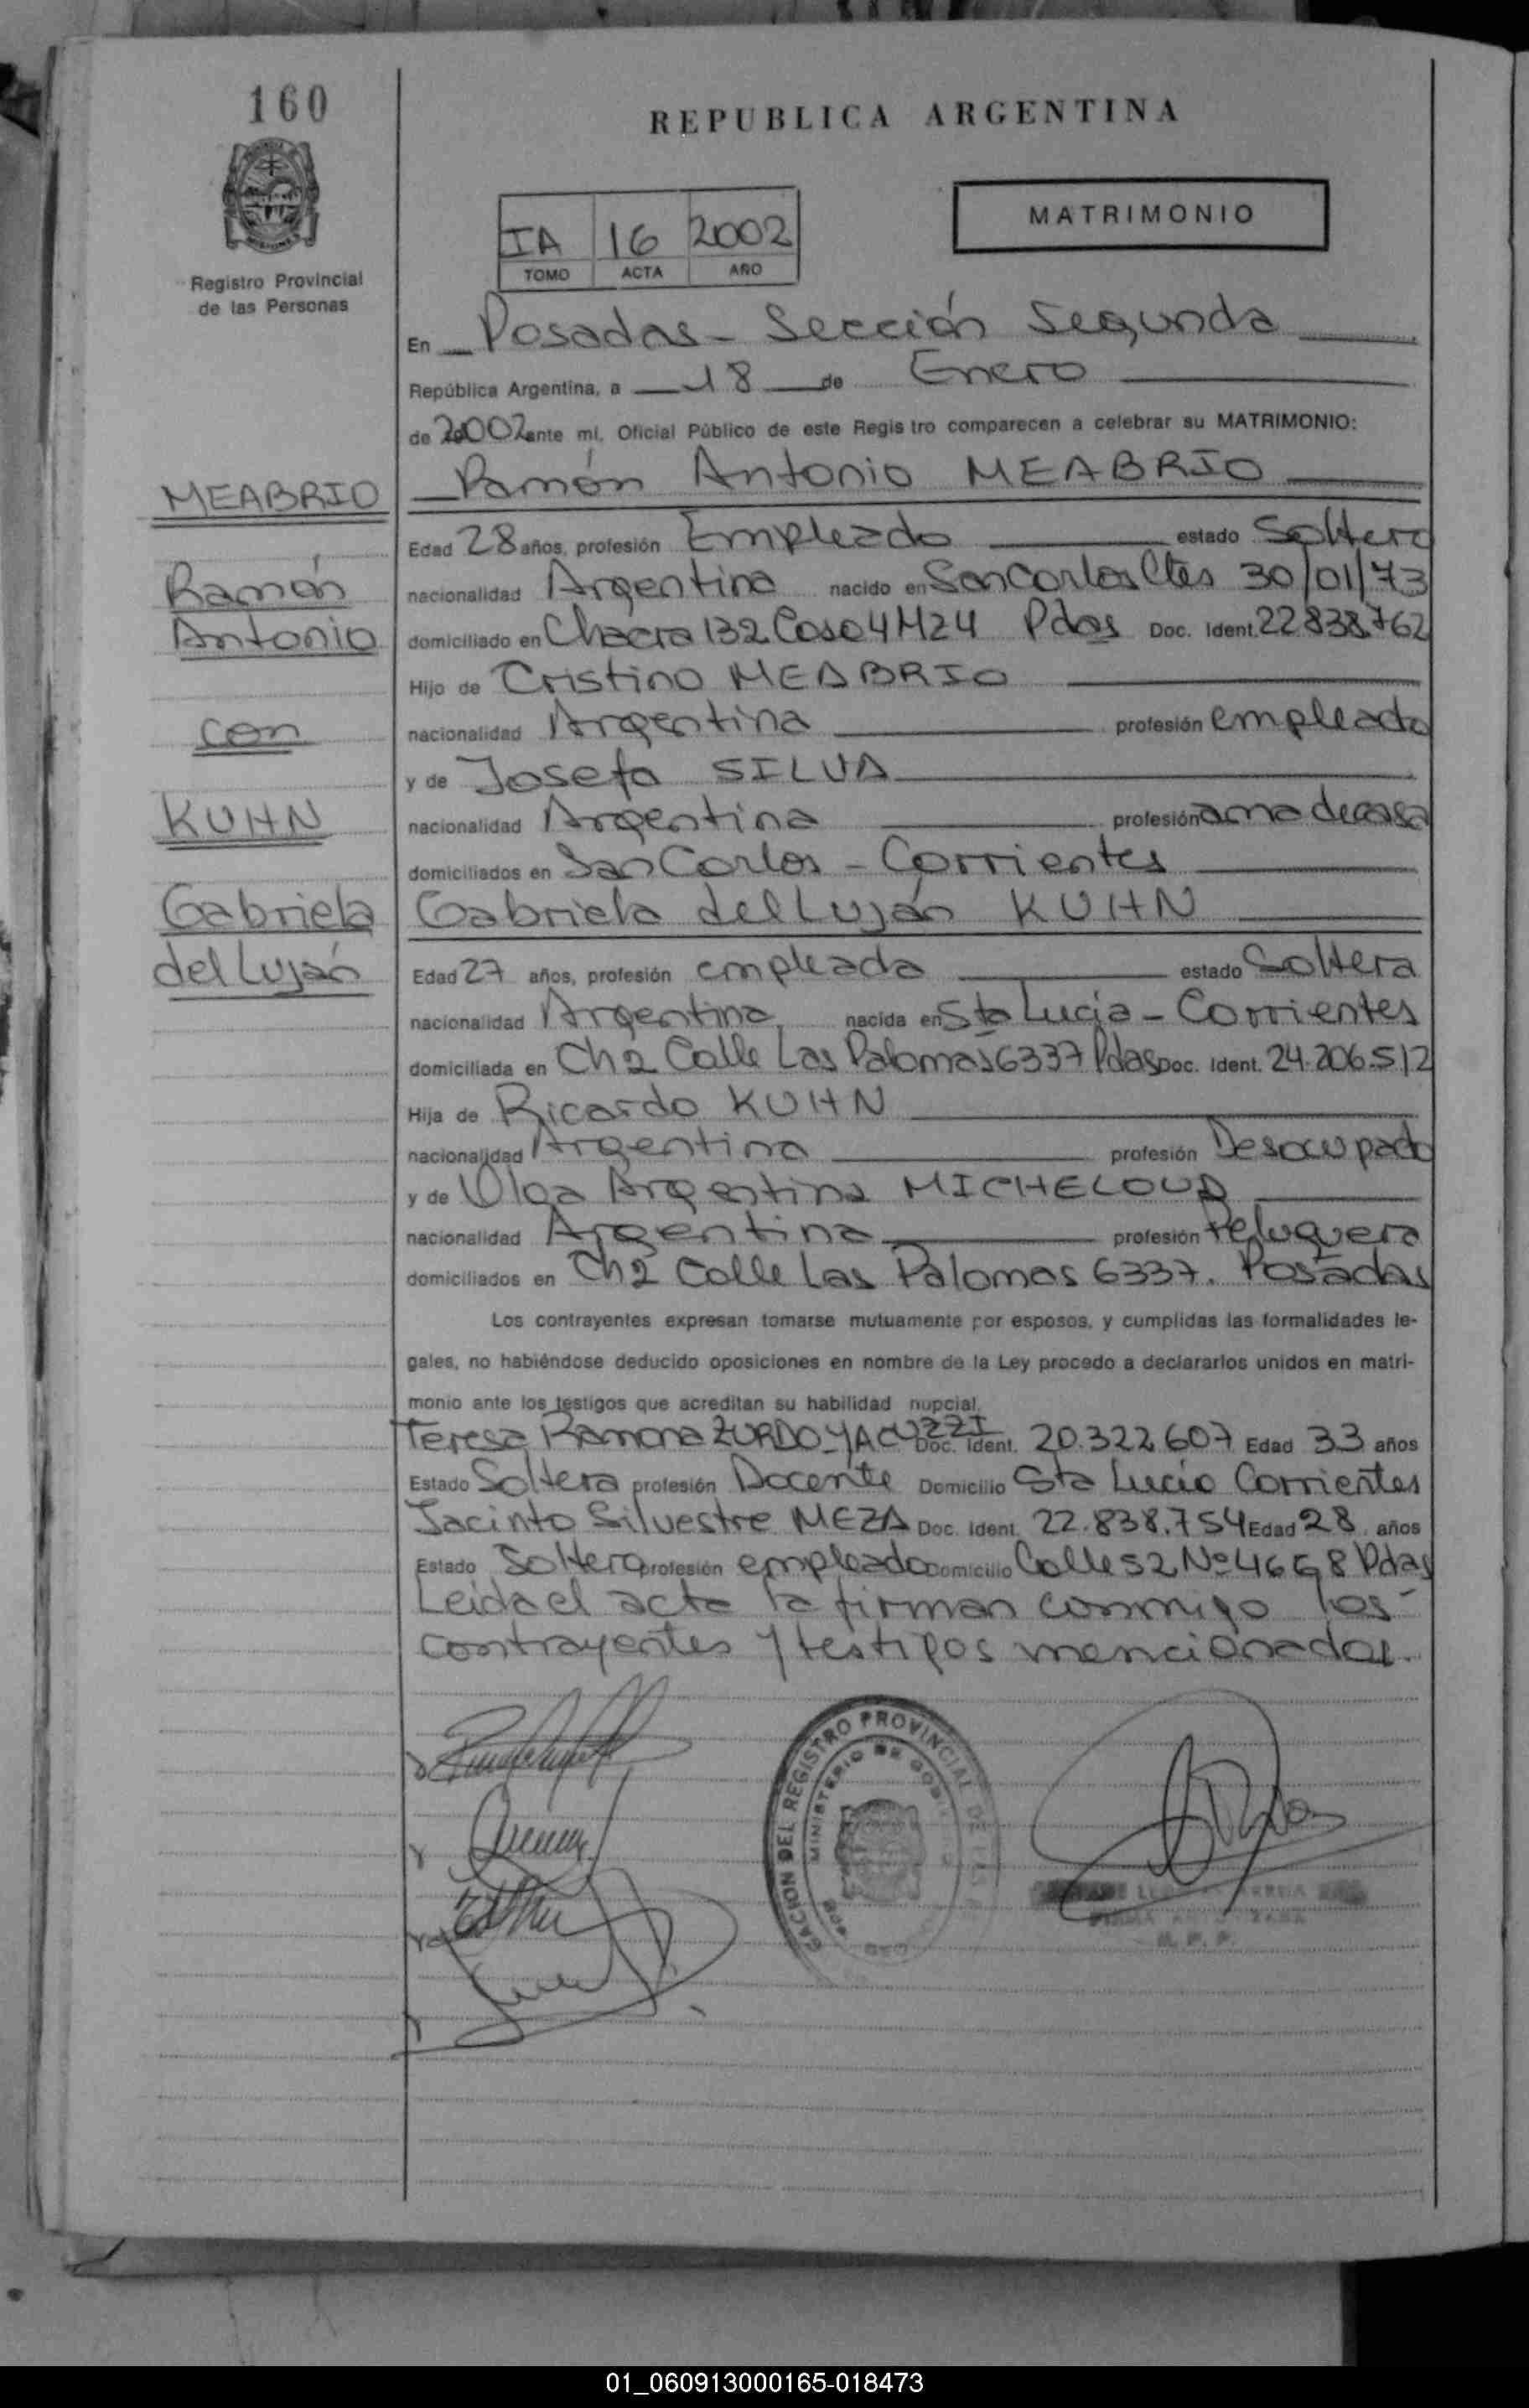 160
REPUBLICA ARGENTINA
IA 16 2002
TOMO ACTA AÑO
MATRIMONIO
Registro Provincial
de las Personas
En Posadas - Sección Segunda
República Argentina, a 18 de Enero
de 2002 ante mí, Oficial Público de este Registro comparecen a celebrar su MATRIMONIO:
MEABRIO
Ramón
Antonio
con
KUHN
Gabriela
del Luján
Ramón Antonio MEABRIO
Edad 28 años, profesión Empleado estado Soltero
nacionalidad Argentina nacido en San Carlos Ctes 30/01/73
domiciliado en Chacra 132 Casa 4 M24 Pdas Doc. Ident. 22.838.762
Hijo de Cristino MEABRIO
nacionalidad Argentina profesión empleado
y de Josefa SILVA
nacionalidad Argentina profesión ama de casa
domiciliados en San Carlos - Corrientes
Gabriela del Luján KUHN
Edad 27 años, profesión empleada estado Soltera
nacionalidad Argentina nacida en Sta Lucia - Corrientes
domiciliada en Ch 2 Calle Las Palomas 6337 Pdas Doc. Ident. 24.206.512
Hija de Ricardo KUHN
nacionalidad Argentina profesión Desocupado
y de Olga Argentina MICHELOUD
nacionalidad Argentina profesión Peluquera
domiciliados en Ch 2 Calle Las Palomas 6337. Posadas
Los contrayentes expresan tomarse mutuamente por esposos, y cumplidas las formalidades le-
gales, no habiéndose deducido oposiciones en nombre de la Ley procedo a declararlos unidos en matri-
monio ante los testigos que acreditan su habilidad nupcial.
Teresa Ramona ZURDO-YACUZZI Doc. Ident. 20.322.607 Edad 33 años
Estado Soltera profesión Docente Domicilio Sta Lucia Corrientes
Jacinto Silvestre MEZA Doc. Ident. 22.838.754 Edad 28 años
Estado Soltero profesión empleado Domicilio Calle 52 Nº 4668 Pdas
Leida el acta la firman conmigo los
contrayentes y testigos mencionados.
DEL REGISTRO PROVINCIAL DE LAS
MINISTERIO DE
01_060913000165-018473